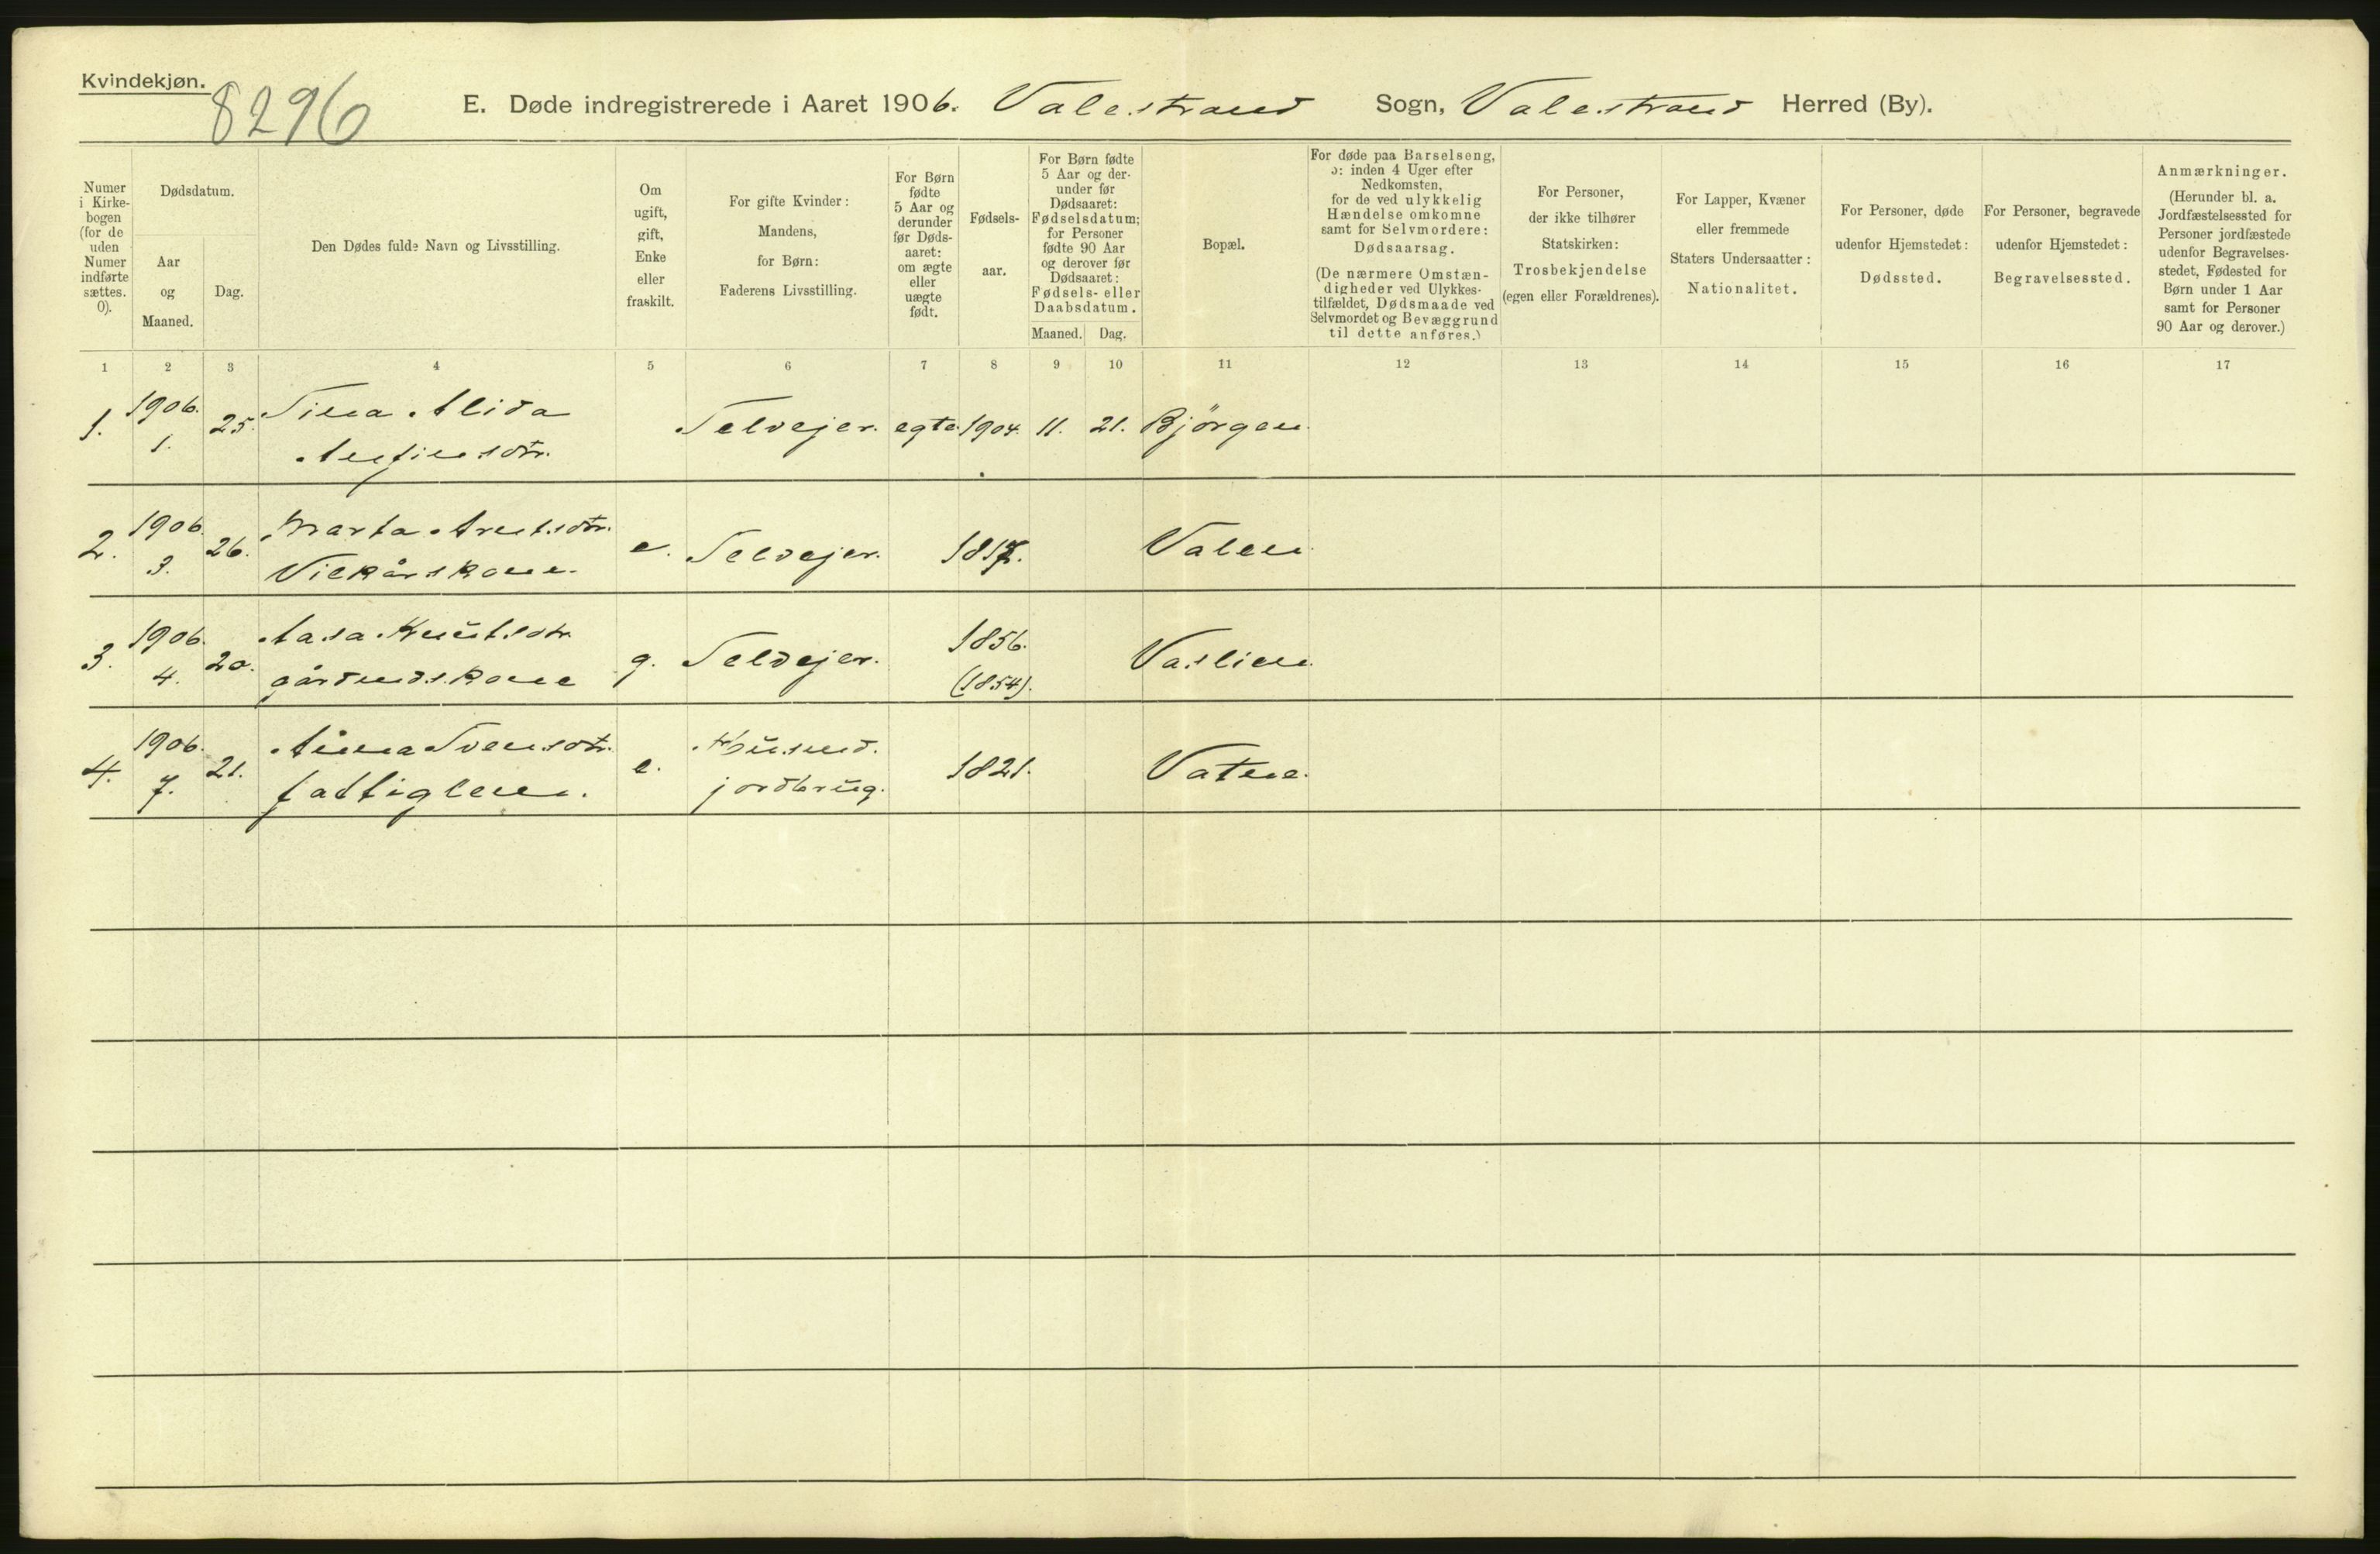 Kvindekjøn.
8296
E. Døde indregistrerede i Aaret 1906. Valestrand Sogn, Valestrand Herred (By).
Numer
i Kirke-
bogen
(for de
uden
Numer
indførte
sættes.
0).
Dødsdatum.
Aar
og
Maaned.
Dag.
Den Dødes fulde Navn og Livsstilling.
Om
ugift,
gift,
Enke
eller
fraskilt.
For gifte Kvinder:
Mandens,
for Børn:
Faderens Livsstilling.
For Børn
fødte
5 Aar og
derunder
før Døds-
aaret:
om ægte
eller
uægte
født.
Fødsels-
aar.
For Børn fødte
5 Aar og der-
under før
Dødsaaret:
Fødselsdatum;
for Personer
fødte 90 Aar
og derover før
Dødsaaret:
Fødsels- eller
Daabsdatum.
Maaned. Dag.
Bopæl.
For døde paa Barselseng,
ɔ: inden 4 Uger efter
Nedkomsten,
for de ved ulykkelig
Hændelse omkomne
samt for Selvmordere:
Dødsaarsag.
(De nærmere Omstæn-
digheder ved Ulykkes-
tilfældet, Dødsmaade ved
Selvmordet og Bevæggrund
til dette anføres.)
For Personer,
der ikke tilhører
Statskirken:
Trosbekjendelse
(egen eller Forældrenes).
For Lapper, Kvæner
eller fremmede
Staters Undersaatter:
Nationalitet.
For Personer, døde
udenfor Hjemstedet:
Dødssted.
For Personer, begravede
udenfor Hjemstedet:
Begravelsessted.
Anmærkninger.
(Herunder bl. a.
Jordfæstelsessted for
Personer jordfæstede
udenfor Begravelses-
stedet, Fødested for
Børn under 1 Aar
samt for Personer
90 Aar og derover.)
1 2 3 4 5 6 7 8 9 10 11 12 13 14 15 16 17
1. 1906. 25. Tina Alida Selvejer. egte. 1904. 11. 21. Björgen.
1. Anfinsdtr.
2. 1906. 26. Marta Arntsdtr. e. Selvejer. Valen.
3. Vilkårskone.
3. 1906. 20. Aasa Knutsdtr. g. Selvejer. 1856. Vaslien.
4. gårdmdskone (1854).
4. 1906. 21. Anna Svensdtr. e. Husmd. 1821. Vatne.
7. fattiglem. jordbrug.